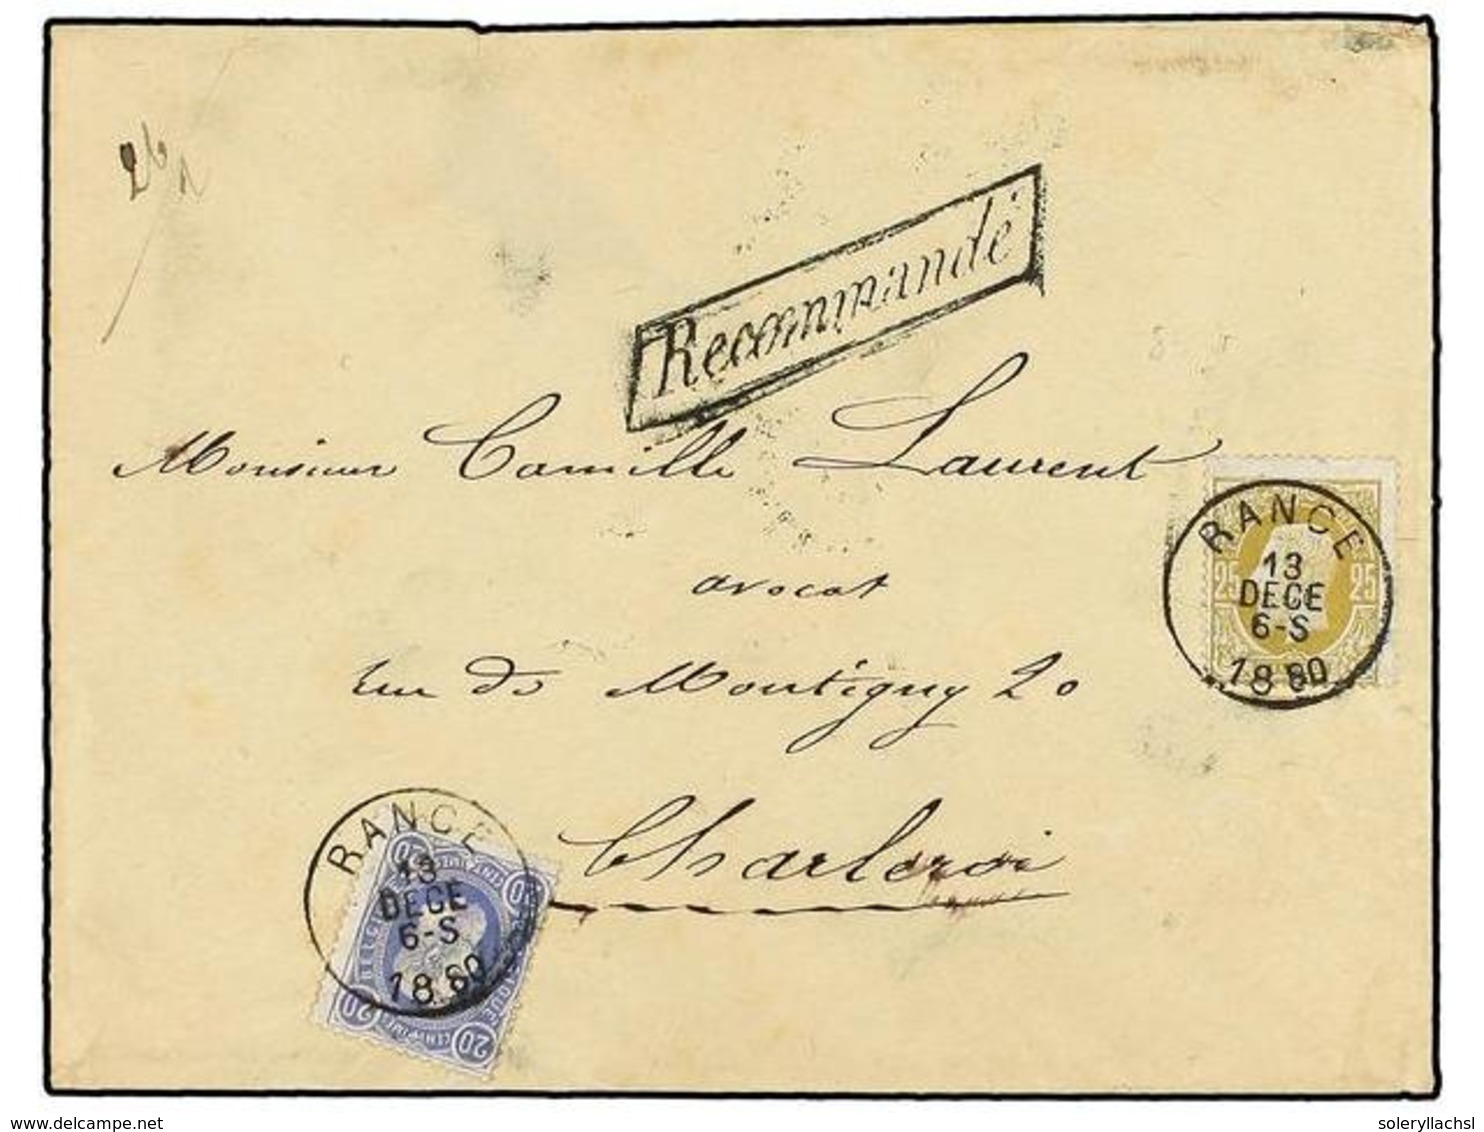 Recommandé
Monsieur Camille Laurent
avocat
rue de Montigny 20
Charleroi
RANCE
13
DECE
6-S
1880
25 25
RANCE
13
DECE
6-S
1880
20 20
20 20
BELGIQUE
CENTIMES
delcampe.net
soleryllachsl